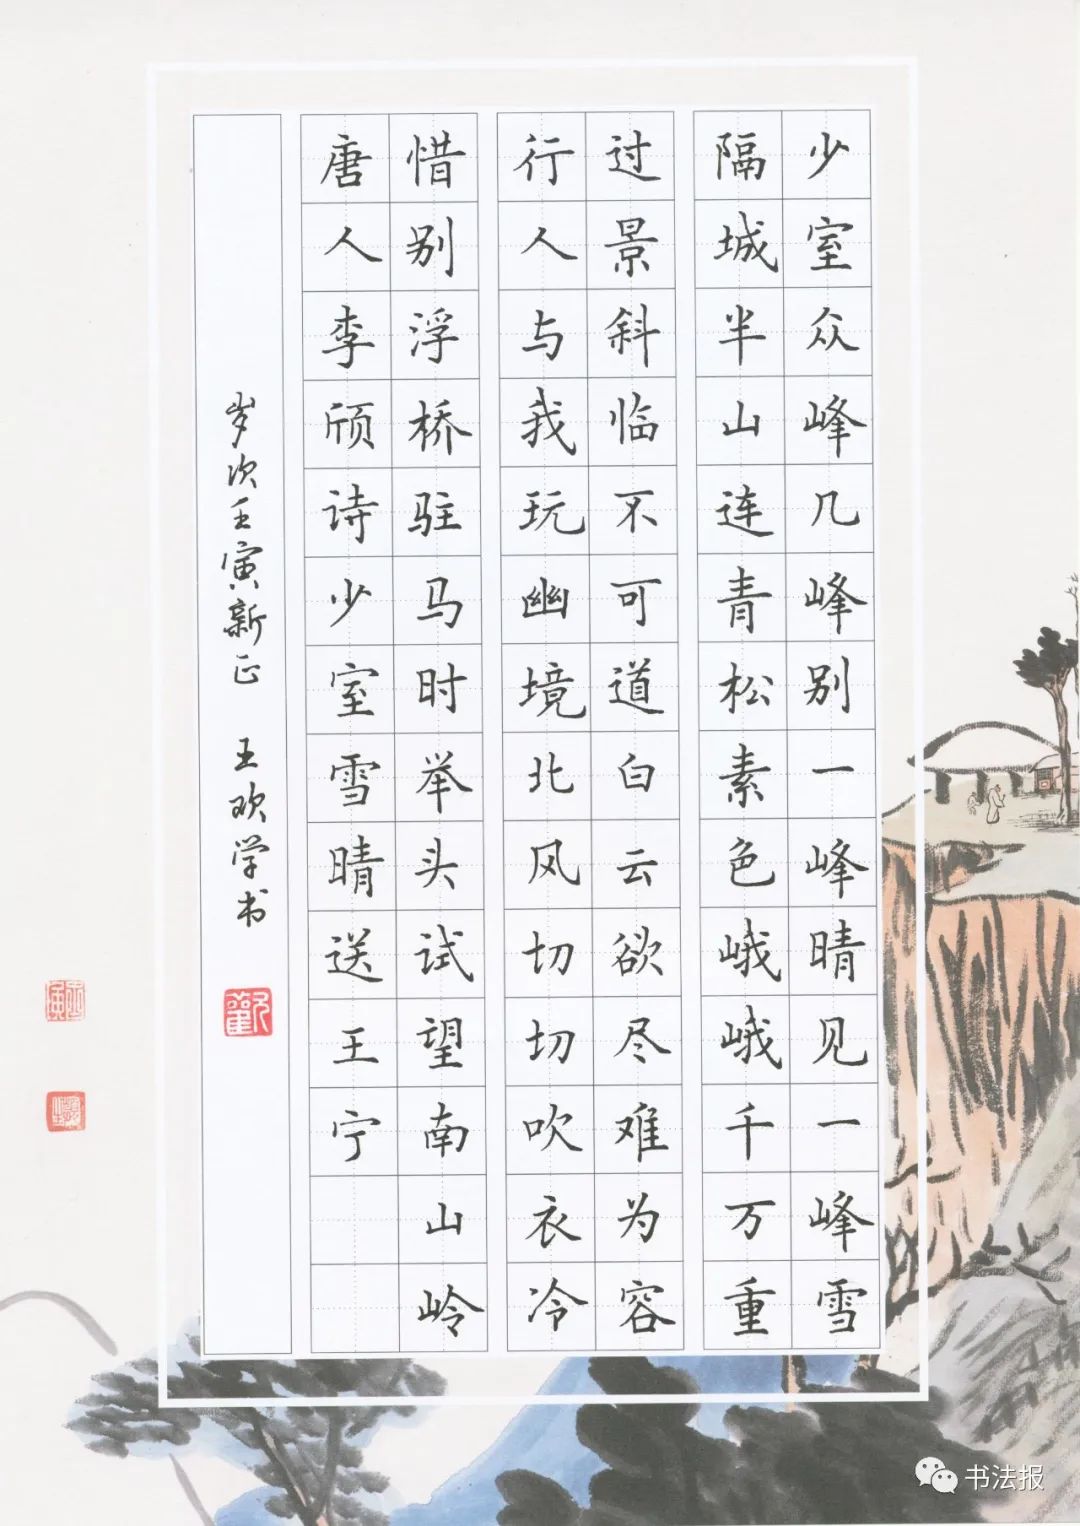 少室众峰几峰别一峰晴见一峰雪
隔城半山连青松素色峨峨千万重
过景斜临不可道白云欲尽难为容
行人与我玩幽境北风切切吹衣冷
惜别浮桥驻马时举头试望南山岭
唐人李颀诗少室雪晴送王宁
岁次壬寅新正 王欢学书
书法报